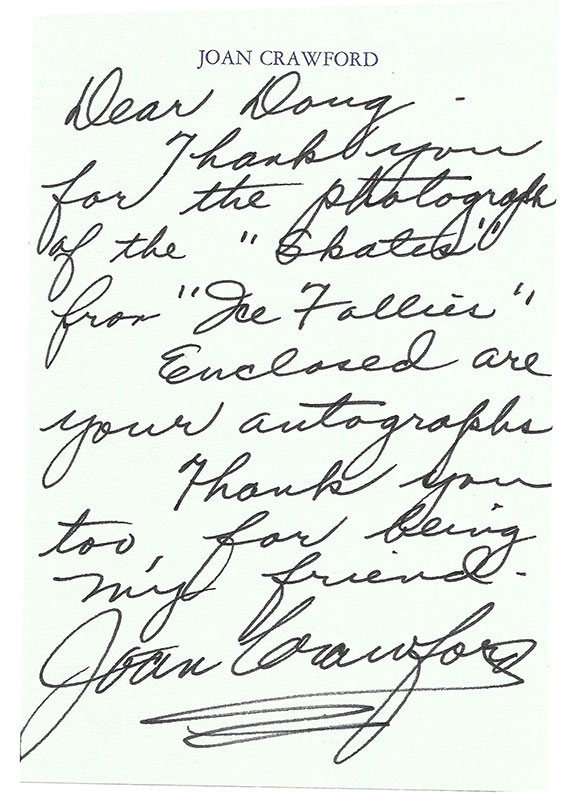 JOAN CRAWFORD
Dear Doug -
Thank you
for the photograph
of the "Skates"
from "Ice Follies"
Enclosed are
your autographs
Thank you
too, for being
my friend -
Joan Crawford